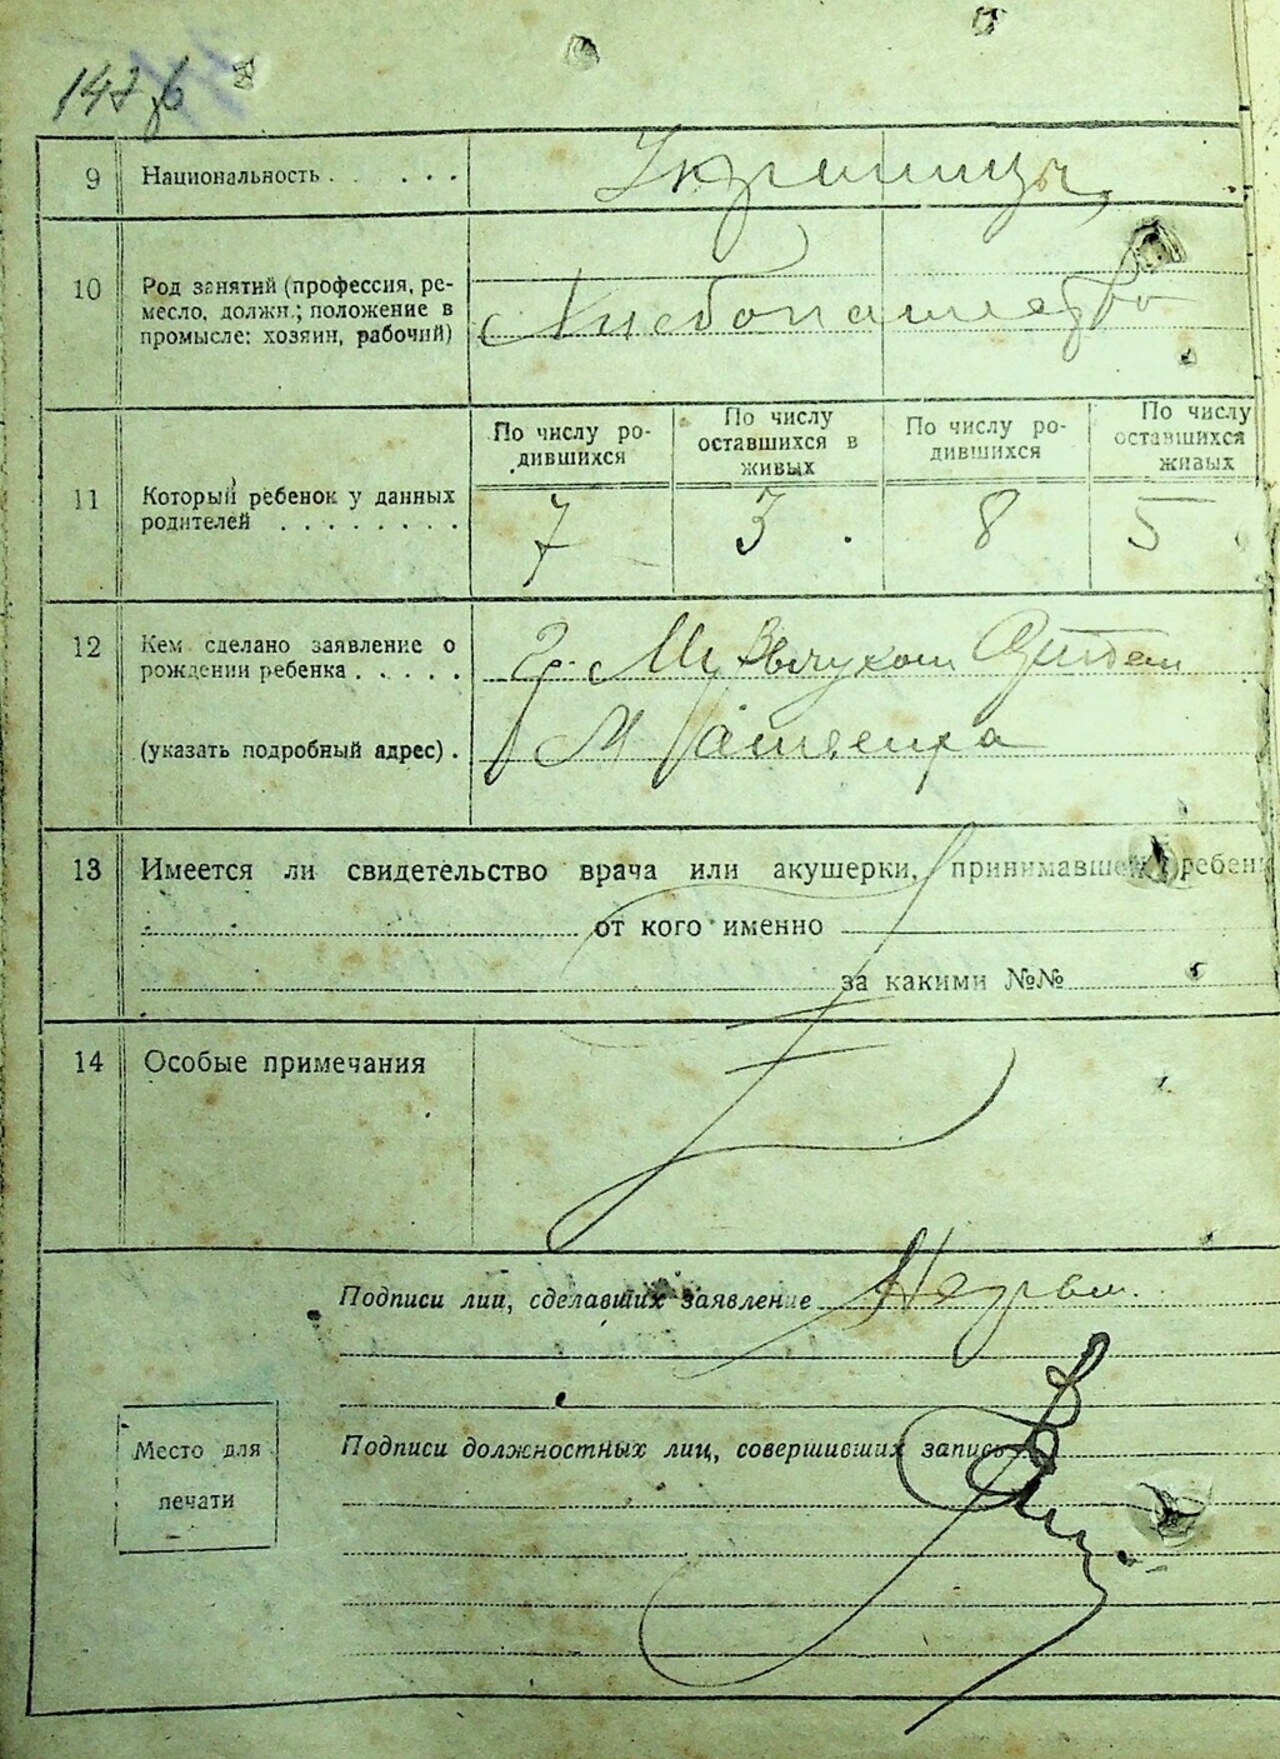 9 Национальность . . . . . Украинцы
10 Род занятий (профессия, ре-
месло, должн.; положение в
промысле: хозяин, рабочий)
Хлебопашество
По числу ро-
дившихся
По числу
оставшихся в
живых
По числу ро-
дившихся
По числу
оставшихся
живых
11 Который ребенок у данных
родителей . . . . . . . .
7 3 8 5
12 Кем сделано заявление о
рождении ребенка . . . . .
(указать подробный адрес) .
гр.
13 Имеется ли свидетельство врача или акушерки, принимавшей ребен
от кого именно
за какими №№
14 Особые примечания
Подписи лиц, сделавших заявление Негром.
Место для
печати
Подписи должностных лиц, совершивших запись